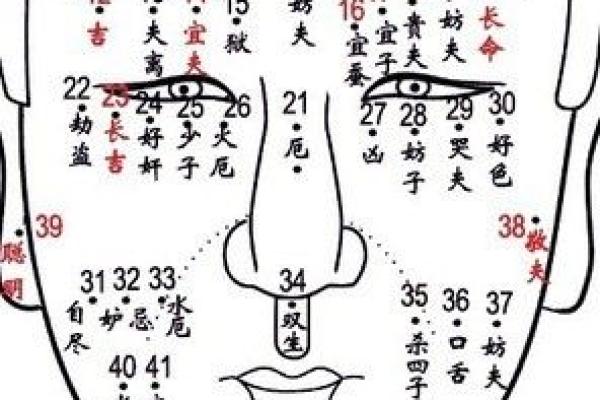 15
16
吉
夫离
宜夫
狱
妨夫
宜蚕
宜子
贵夫
妨夫
长命
22
23
24
25
26
21
27
28
29
30
劫盗
长吉
好奸
少子
火厄
厄
凶
妨子
哭夫
好色
39
38
聪明
敬夫
31
32
33
34
35
36
37
自尽
妒忌
水厄
双生
杀四子
口舌
妨夫
40
41